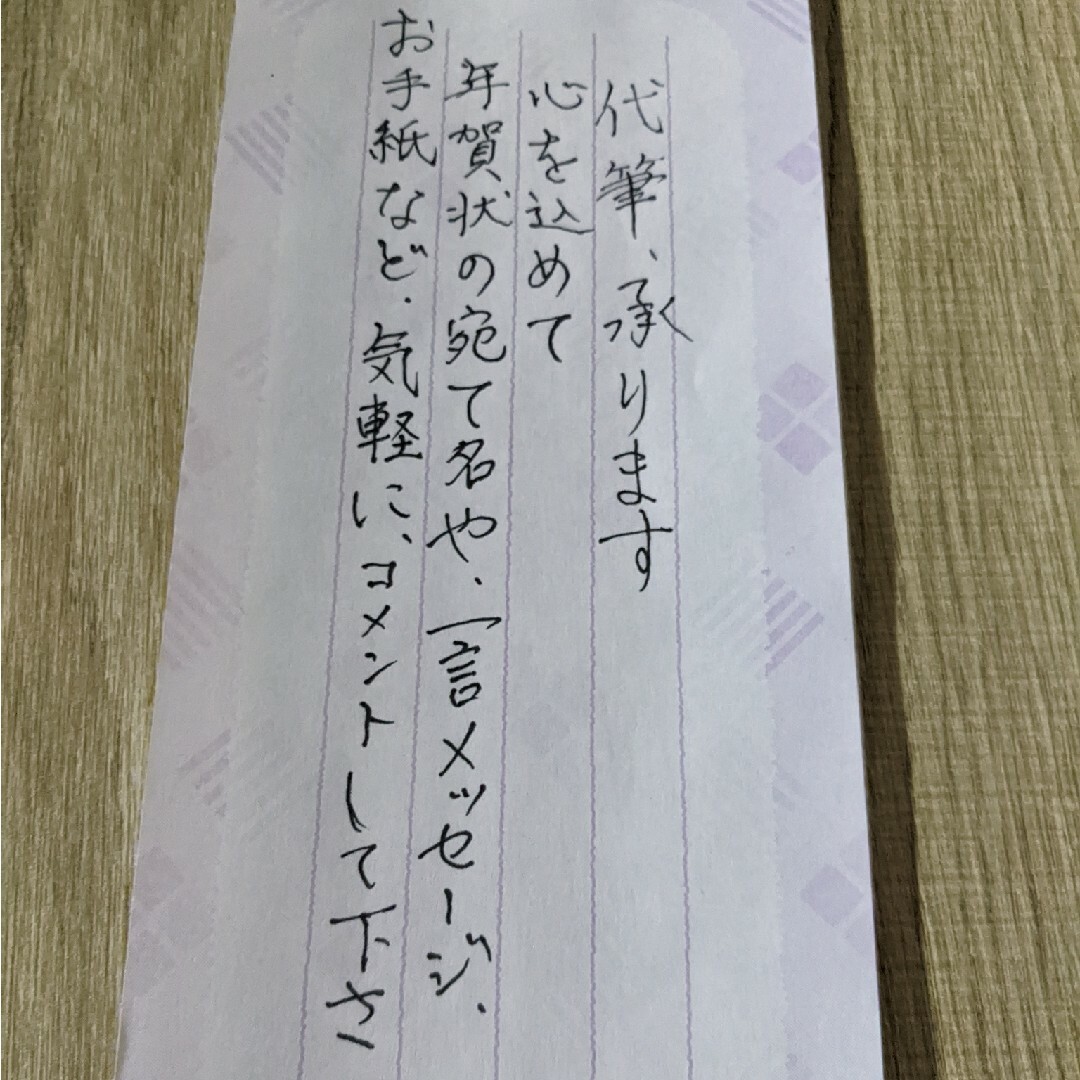 代筆、承ります
心を込めて
年賀状の宛て名や、一言メッセージ、
お手紙など、気軽に、コメントして下さ